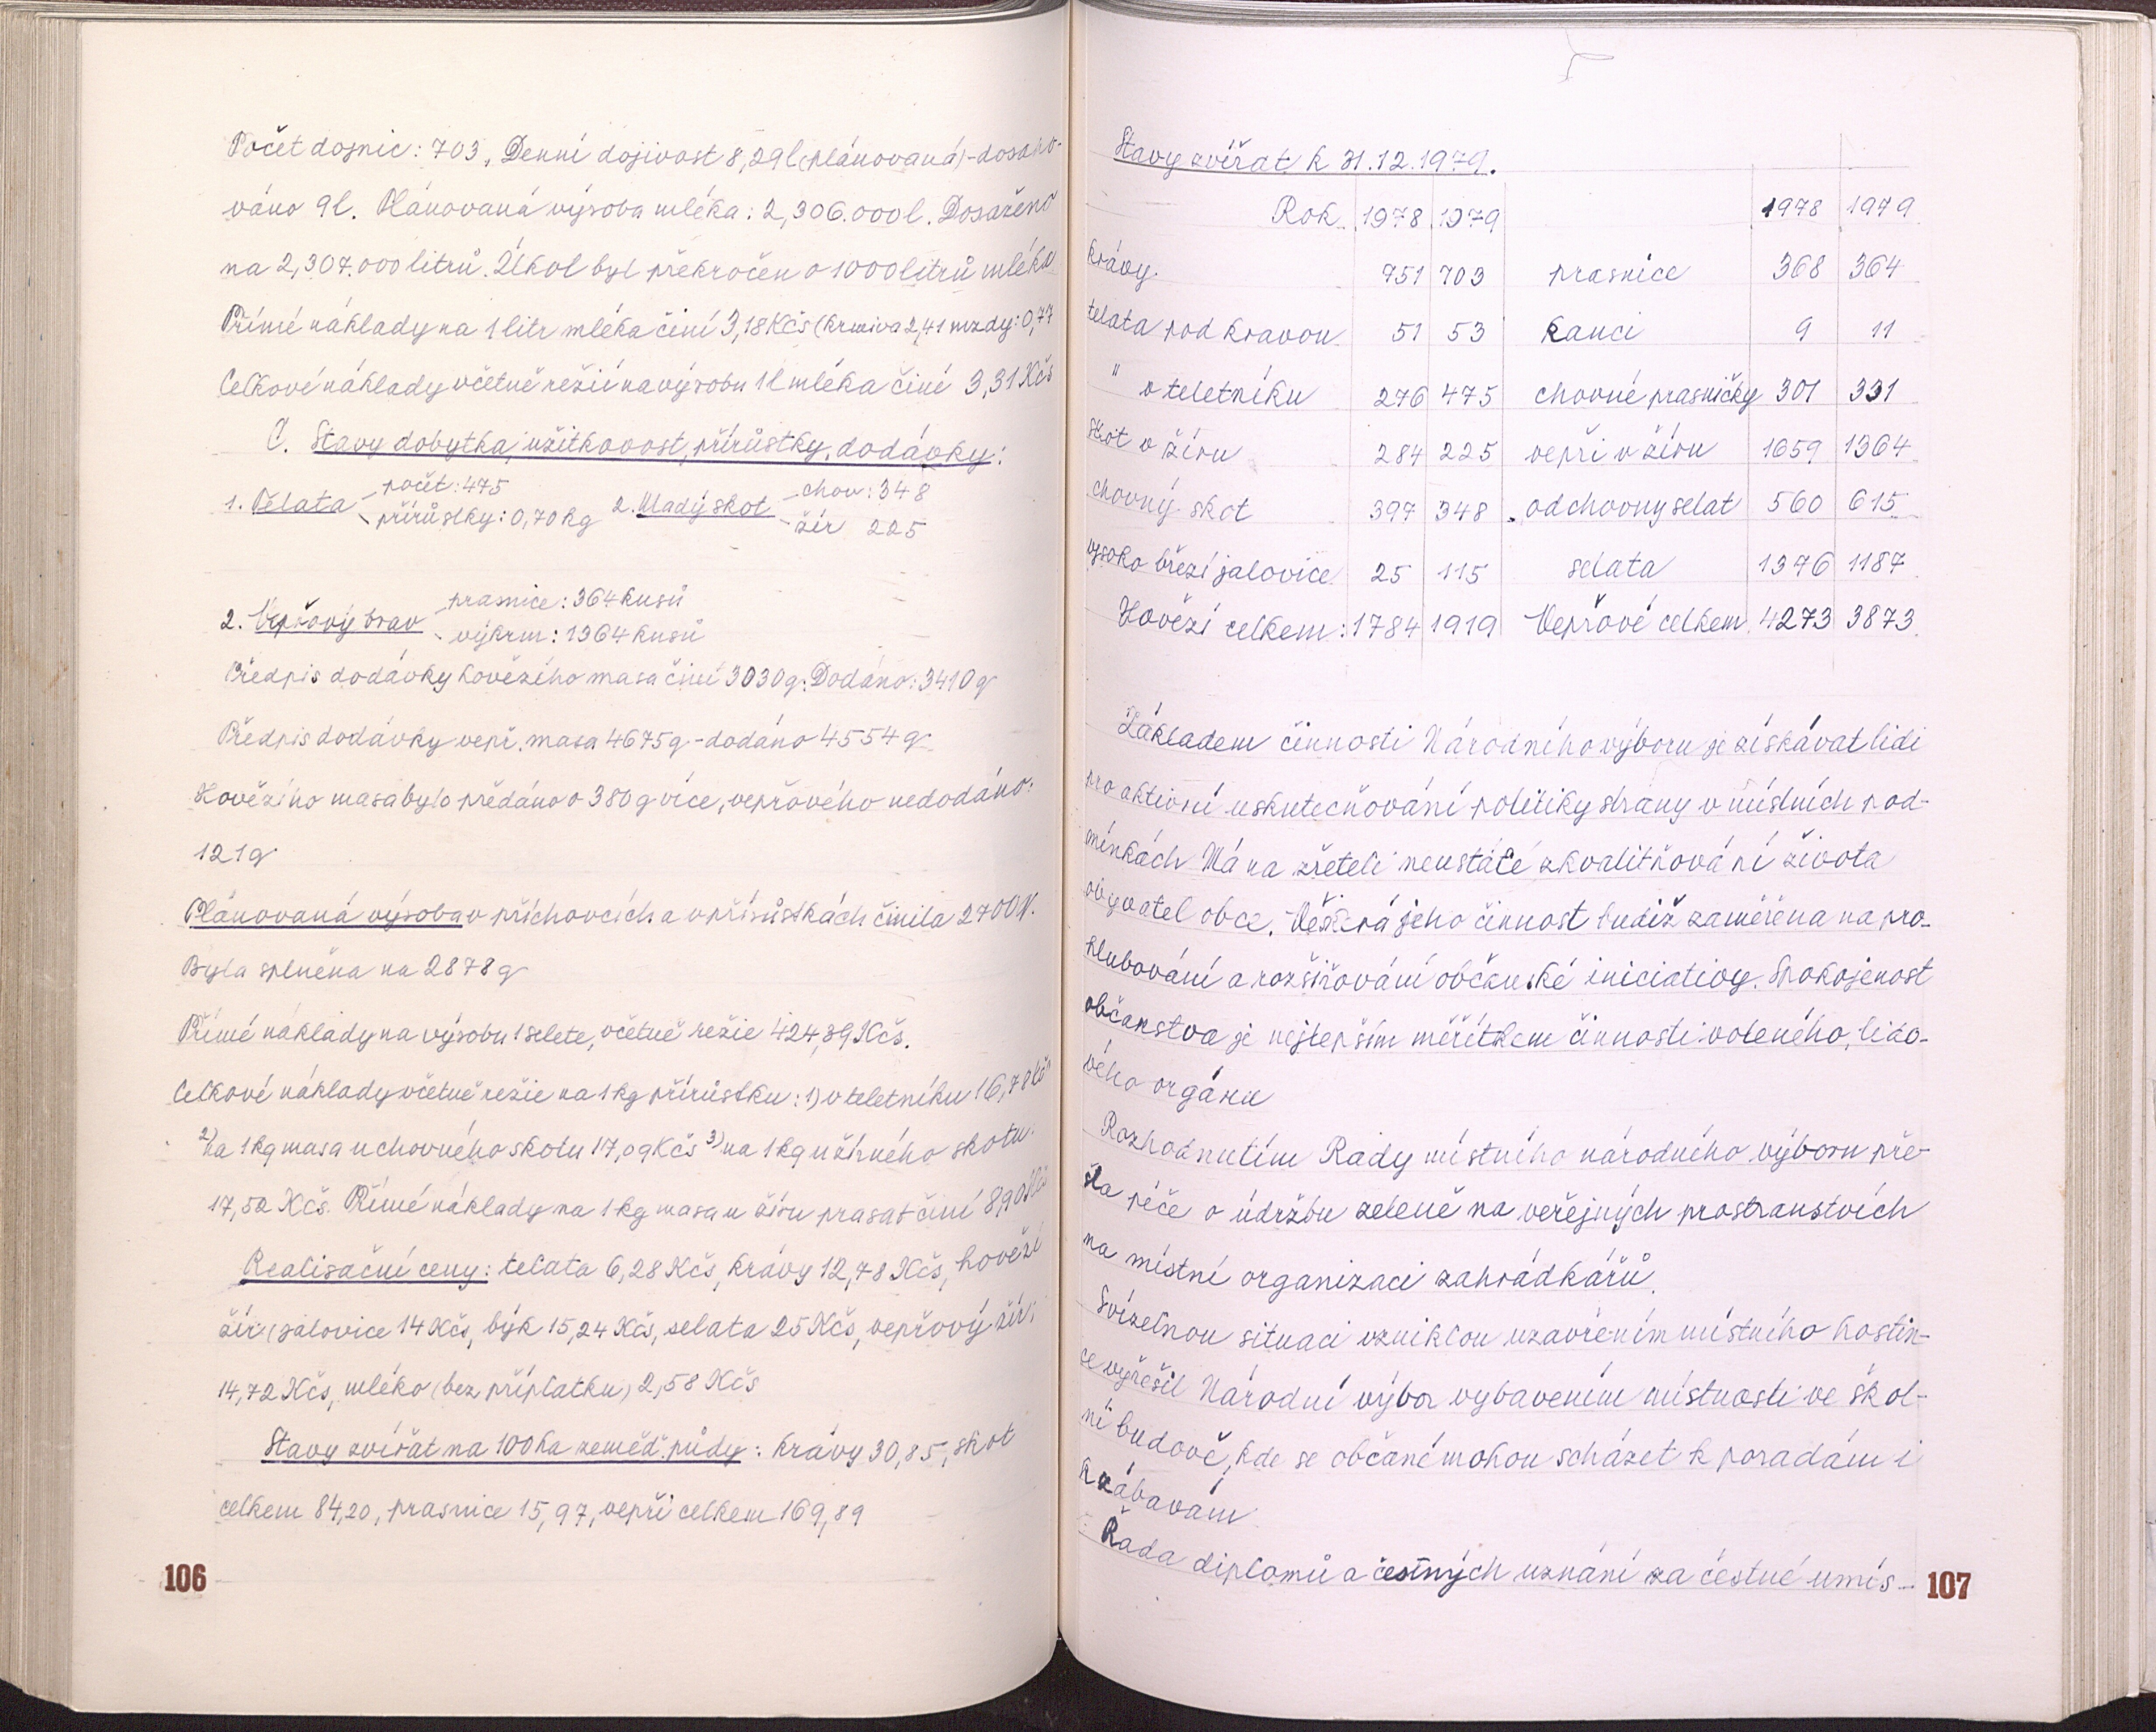 Počet dojnic: 703, Denní dojivost 8,29l (plánovaná) - dosaho-
váno 9l. Plánovaná výroba mléka: 2,306.000l. Dosaženo
na 2,307.000 litrů. Úkol byl překročen o 1000 litrů mléka
Přímé náklady na 1 litr mléka činí 3,18 Kčs (krmiva 2,41 mzdy: 0,77
Celkové náklady včetně režií na výrobu 1l mléka činí 3,31 Kčs
C. Stavy dobytka, užitkovost, přírůstky, dodávky:
1. Telata počet: 475 přírůstky: 0,70 kg 2. Mladý skot chov: 348 žír 225
2. Vepřový brav prasnice: 364 kusů výkrm: 1364 kusů
Předpis dodávky hovězího masa činí 3030 q. Dodáno: 3410 q
Předpis dodávky vepř. masa 4675 q - dodáno 4554 q
Hovězího masa bylo předáno o 380 q více, vepřového nedodáno:
121 q
Plánovaná výroba v příchovcích a v přírůstkách činila 2700
Byla splněna na 2878 q
Přímé náklady na výrobu 1 selete, včetně režie 424,39 Kčs.
Celkové náklady včetně režie na 1 kg přírůstku: 1) v teletníku 16,78 Kčs
2) na 1 kg masa u chovného skotu 17,09 Kčs 3) na 1 kg u žírného skotu:
17,52 Kčs. Přímé náklady na 1 kg masa u žíru prasat činí 8,90 Kčs
Realisační ceny: telata 6,28 Kčs, krávy 12,78 Kčs, hovězí
žír (jalovice 14 Kčs, býk 15,24 Kčs, selata 25 Kčs, vepřový žír:
14,72 Kčs, mléko (bez příplatku) 2,58 Kčs
Stavy zvířat na 100 ha zeměd. půdy: krávy 30,85, skot
celkem 84,20, prasnice 15,97, vepři celkem 169,89
106
Stavy zvířat k 31.12.1979.
Rok 1978 1979 1978 1979
krávy 751 703 prasnice 368 364
telata pod kravou 51 53 kanci 9 11
" v teletníku 276 475 chovné prasničky 301 331
skot v žíru 284 225 vepři v žíru 1659 1364
chovný skot 397 348 odchovny selat 560 615
vysoko březí jalovice 25 115 selata 1376 1187
Hovězí celkem: 1784 1919 Vepřové celkem 4273 3873
Základem činnosti Národního výboru je získávat lidi
pro aktivní uskutečňování politiky strany v místních pod-
mínkách Má na zřeteli neustálé zkvalitňování života
obyvatel obce. Veškerá jeho činnost budiž zaměřena na pro-
hlubování a rozšiřování občanské iniciativy. Spokojenost
občanstva je nejlepším měřítkem činnosti voleného, lido-
vého orgánu
Rozhodnutím Rady místního národního výboru pře-
šla péče o údržbu zeleně na veřejných prostranstvích
na místní organizaci zahrádkářů.
Svízelnou situaci vzniklou uzavřením místního hostin-
ce vyřešil Národní výbor vybavením místnosti ve škol-
ní budově, kde se občané mohou scházet k poradám i
k zábavám
Řada diplomů a čestných uznání za čestné umís-
107